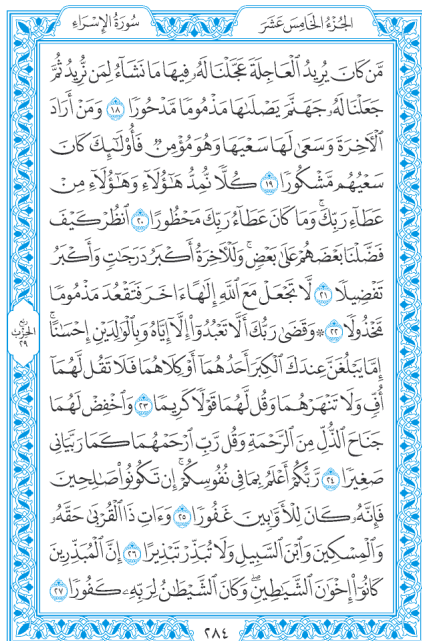 الجُزْءُ الخَامِسَ عَشَرَ
سُورَةُ الإِسْرَاءِ
مَّن كَانَ يُرِيدُ ٱلْعَاجِلَةَ عَجَّلْنَا لَهُۥ فِيهَا مَا نَشَآءُ لِمَن نُّرِيدُ ثُمَّ
جَعَلْنَا لَهُۥ جَهَنَّمَ يَصْلَىٰهَا مَذْمُومًا مَّدْحُورًا ١٨ وَمَنْ أَرَادَ
ٱلْأَخِرَةَ وَسَعَىٰ لَهَا سَعْيَهَا وَهُوَ مُؤْمِنٌ فَأُو۟لَٰٓئِكَ كَانَ
سَعْيُهُم مَّشْكُورًا ١٩ كُلًّا نُّمِدُّ هَٰٓؤُلَآءِ وَهَٰٓؤُلَآءِ مِنْ
عَطَآءِ رَبِّكَۚ وَمَا كَانَ عَطَآءُ رَبِّكَ مَحْظُورًا ٢٠ ٱنظُرْ كَيْفَ
فَضَّلْنَا بَعْضَهُمْ عَلَىٰ بَعْضٍۚ وَلَلْأَخِرَةُ أَكْبَرُ دَرَجَٰتٍ وَأَكْبَرُ
تَفْضِيلًا ٢١ لَّا تَجْعَلْ مَعَ ٱللَّهِ إِلَٰهًا ءَاخَرَ فَتَقْعُدَ مَذْمُومًا
مَّخْذُولًا ٢٢ ۞ وَقَضَىٰ رَبُّكَ أَلَّا تَعْبُدُوٓا۟ إِلَّآ إِيَّاهُ وَبِٱلْوَٰلِدَيْنِ إِحْسَٰنًاۚ
إِمَّا يَبْلُغَنَّ عِندَكَ ٱلْكِبَرَ أَحَدُهُمَآ أَوْ كِلَاهُمَا فَلَا تَقُل لَّهُمَآ
أُفٍّ وَلَا تَنْهَرْهُمَا وَقُل لَّهُمَا قَوْلًا كَرِيمًا ٢٣ وَٱخْفِضْ لَهُمَا
جَنَاحَ ٱلذُّلِّ مِنَ ٱلرَّحْمَةِ وَقُل رَّبِّ ٱرْحَمْهُمَا كَمَا رَبَّيَانِى
صَغِيرًا ٢٤ رَّبُّكُمْ أَعْلَمُ بِمَا فِى نُفُوسِكُمْۚ إِن تَكُونُوا۟ صَٰلِحِينَ
فَإِنَّهُۥ كَانَ لِلْأَوَّٰبِينَ غَفُورًا ٢٥ وَءَاتِ ذَا ٱلْقُرْبَىٰ حَقَّهُۥ
وَٱلْمِسْكِينَ وَٱبْنَ ٱلسَّبِيلِ وَلَا تُبَذِّرْ تَبْذِيرًا ٢٦ إِنَّ ٱلْمُبَذِّرِينَ
كَانُوٓا۟ إِخْوَٰنَ ٱلشَّيَٰطِينِۖ وَكَانَ ٱلشَّيْطَٰنُ لِرَبِّهِۦ كَفُورًا ٢٧
ربع
الحزب
٢٩
٢٨٤